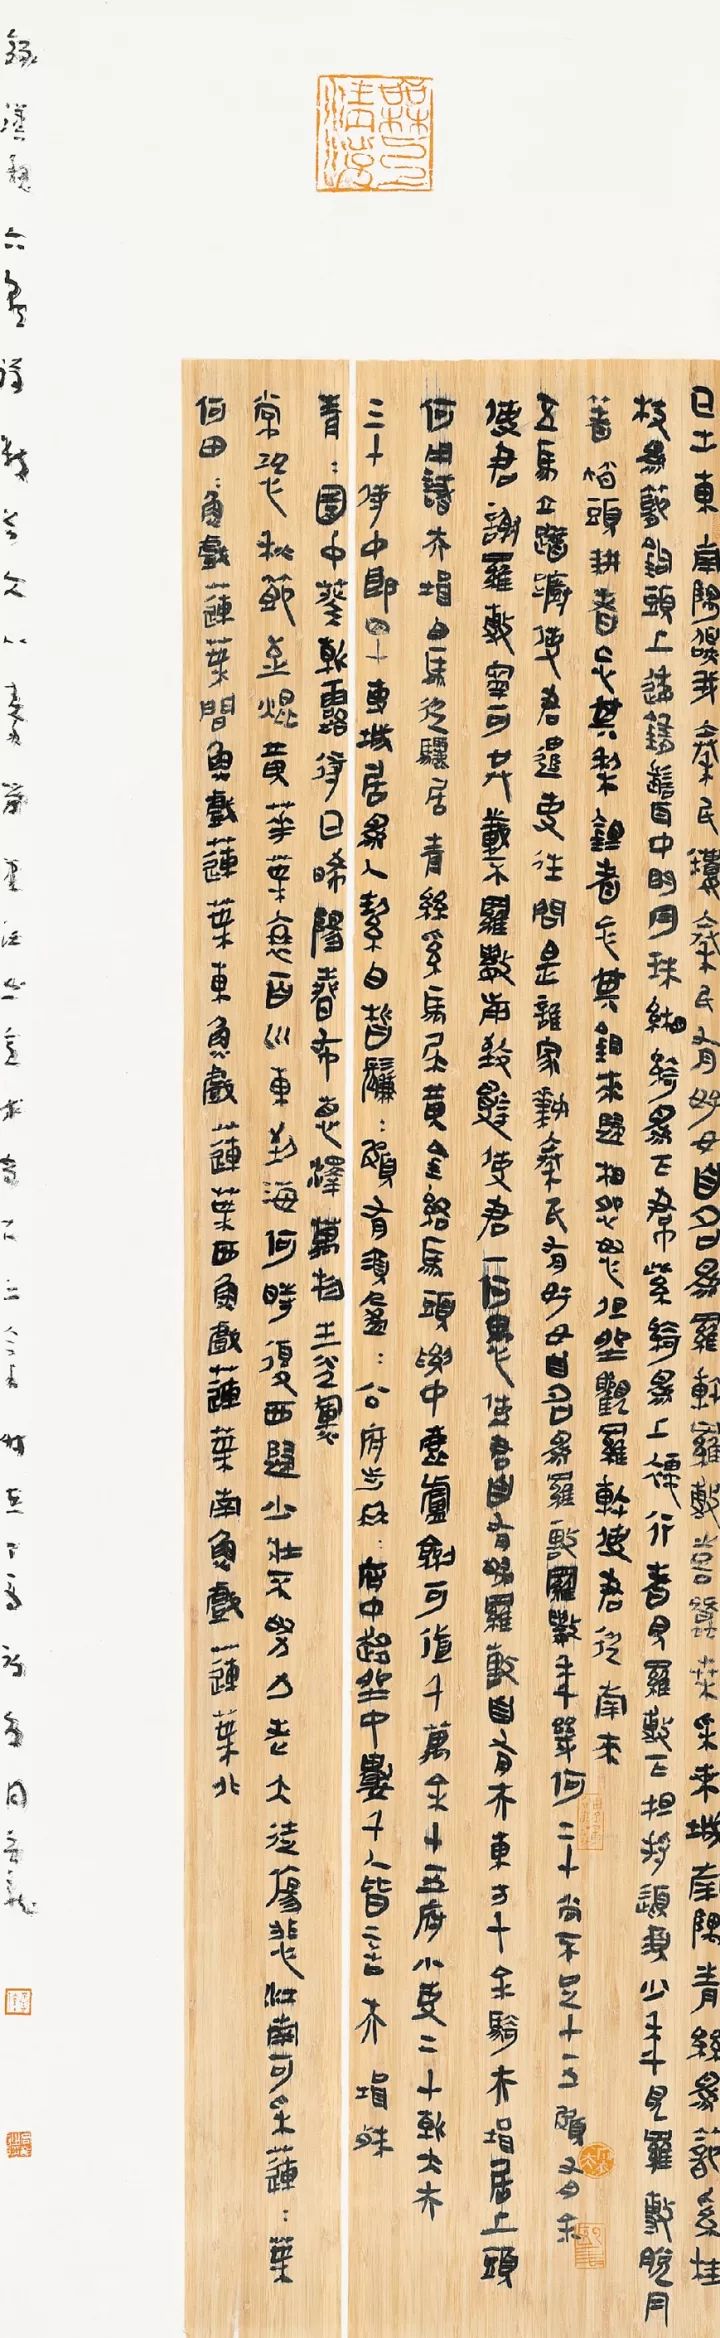 日出東南隅照我秦氏樓秦氏有好女自名為羅敷羅敷喜蠶桑采桑城南隅青絲為籠系桂
枝為籠鉤頭上倭墮髻耳中明月珠緗綺為下帬紫綺為上襦行者見羅敷下擔捋髭須少年見羅敷脫冃
著帩頭耕者忘其犁鋤者忘其鋤來歸相怨怒但坐觀羅敷使君從南來
五馬立踟躕使君遣吏往問是誰家姝秦氏有好女自名為羅敷羅敷年幾何二十尚不足十五頗有余
使君謝羅敷寧可共載不羅敷前致辭使君一何愚使君自有婦羅敷自有夫東方千余騎夫壻居上頭
何用識夫壻白馬從驪居青絲系馬尾黃金絡馬頭腰中鹿盧劍可值千萬余十五府小吏二十朝大夫
三十侍中郎四十專城居為人絜白皙鬑:頗有須盈:公府步冉:府中趨坐中數千人皆言夫壻殊
青:園中葵朝露待日晞陽春布德澤萬物生光輝
常恐秋節至焜黃華葉衰百川東到海何時復西歸少壯不努力老大徒傷悲江南可采蓮:葉
何田:魚戲蓮葉間魚戲蓮葉東魚戲蓮葉西魚戲蓮葉南魚戲蓮葉北
錄漢魏六朝